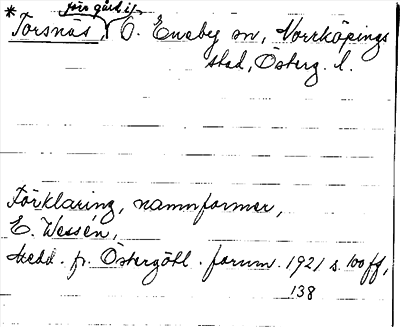 förr gård i f.
*Torsnäs, Ö. Eneby sn, Norrköpings
stad, Österg. l.
Förklaring, namnformer,
E. Wessén,
Medd. fr. Östergötl. fornm. 1921 s. 100 ff,
138